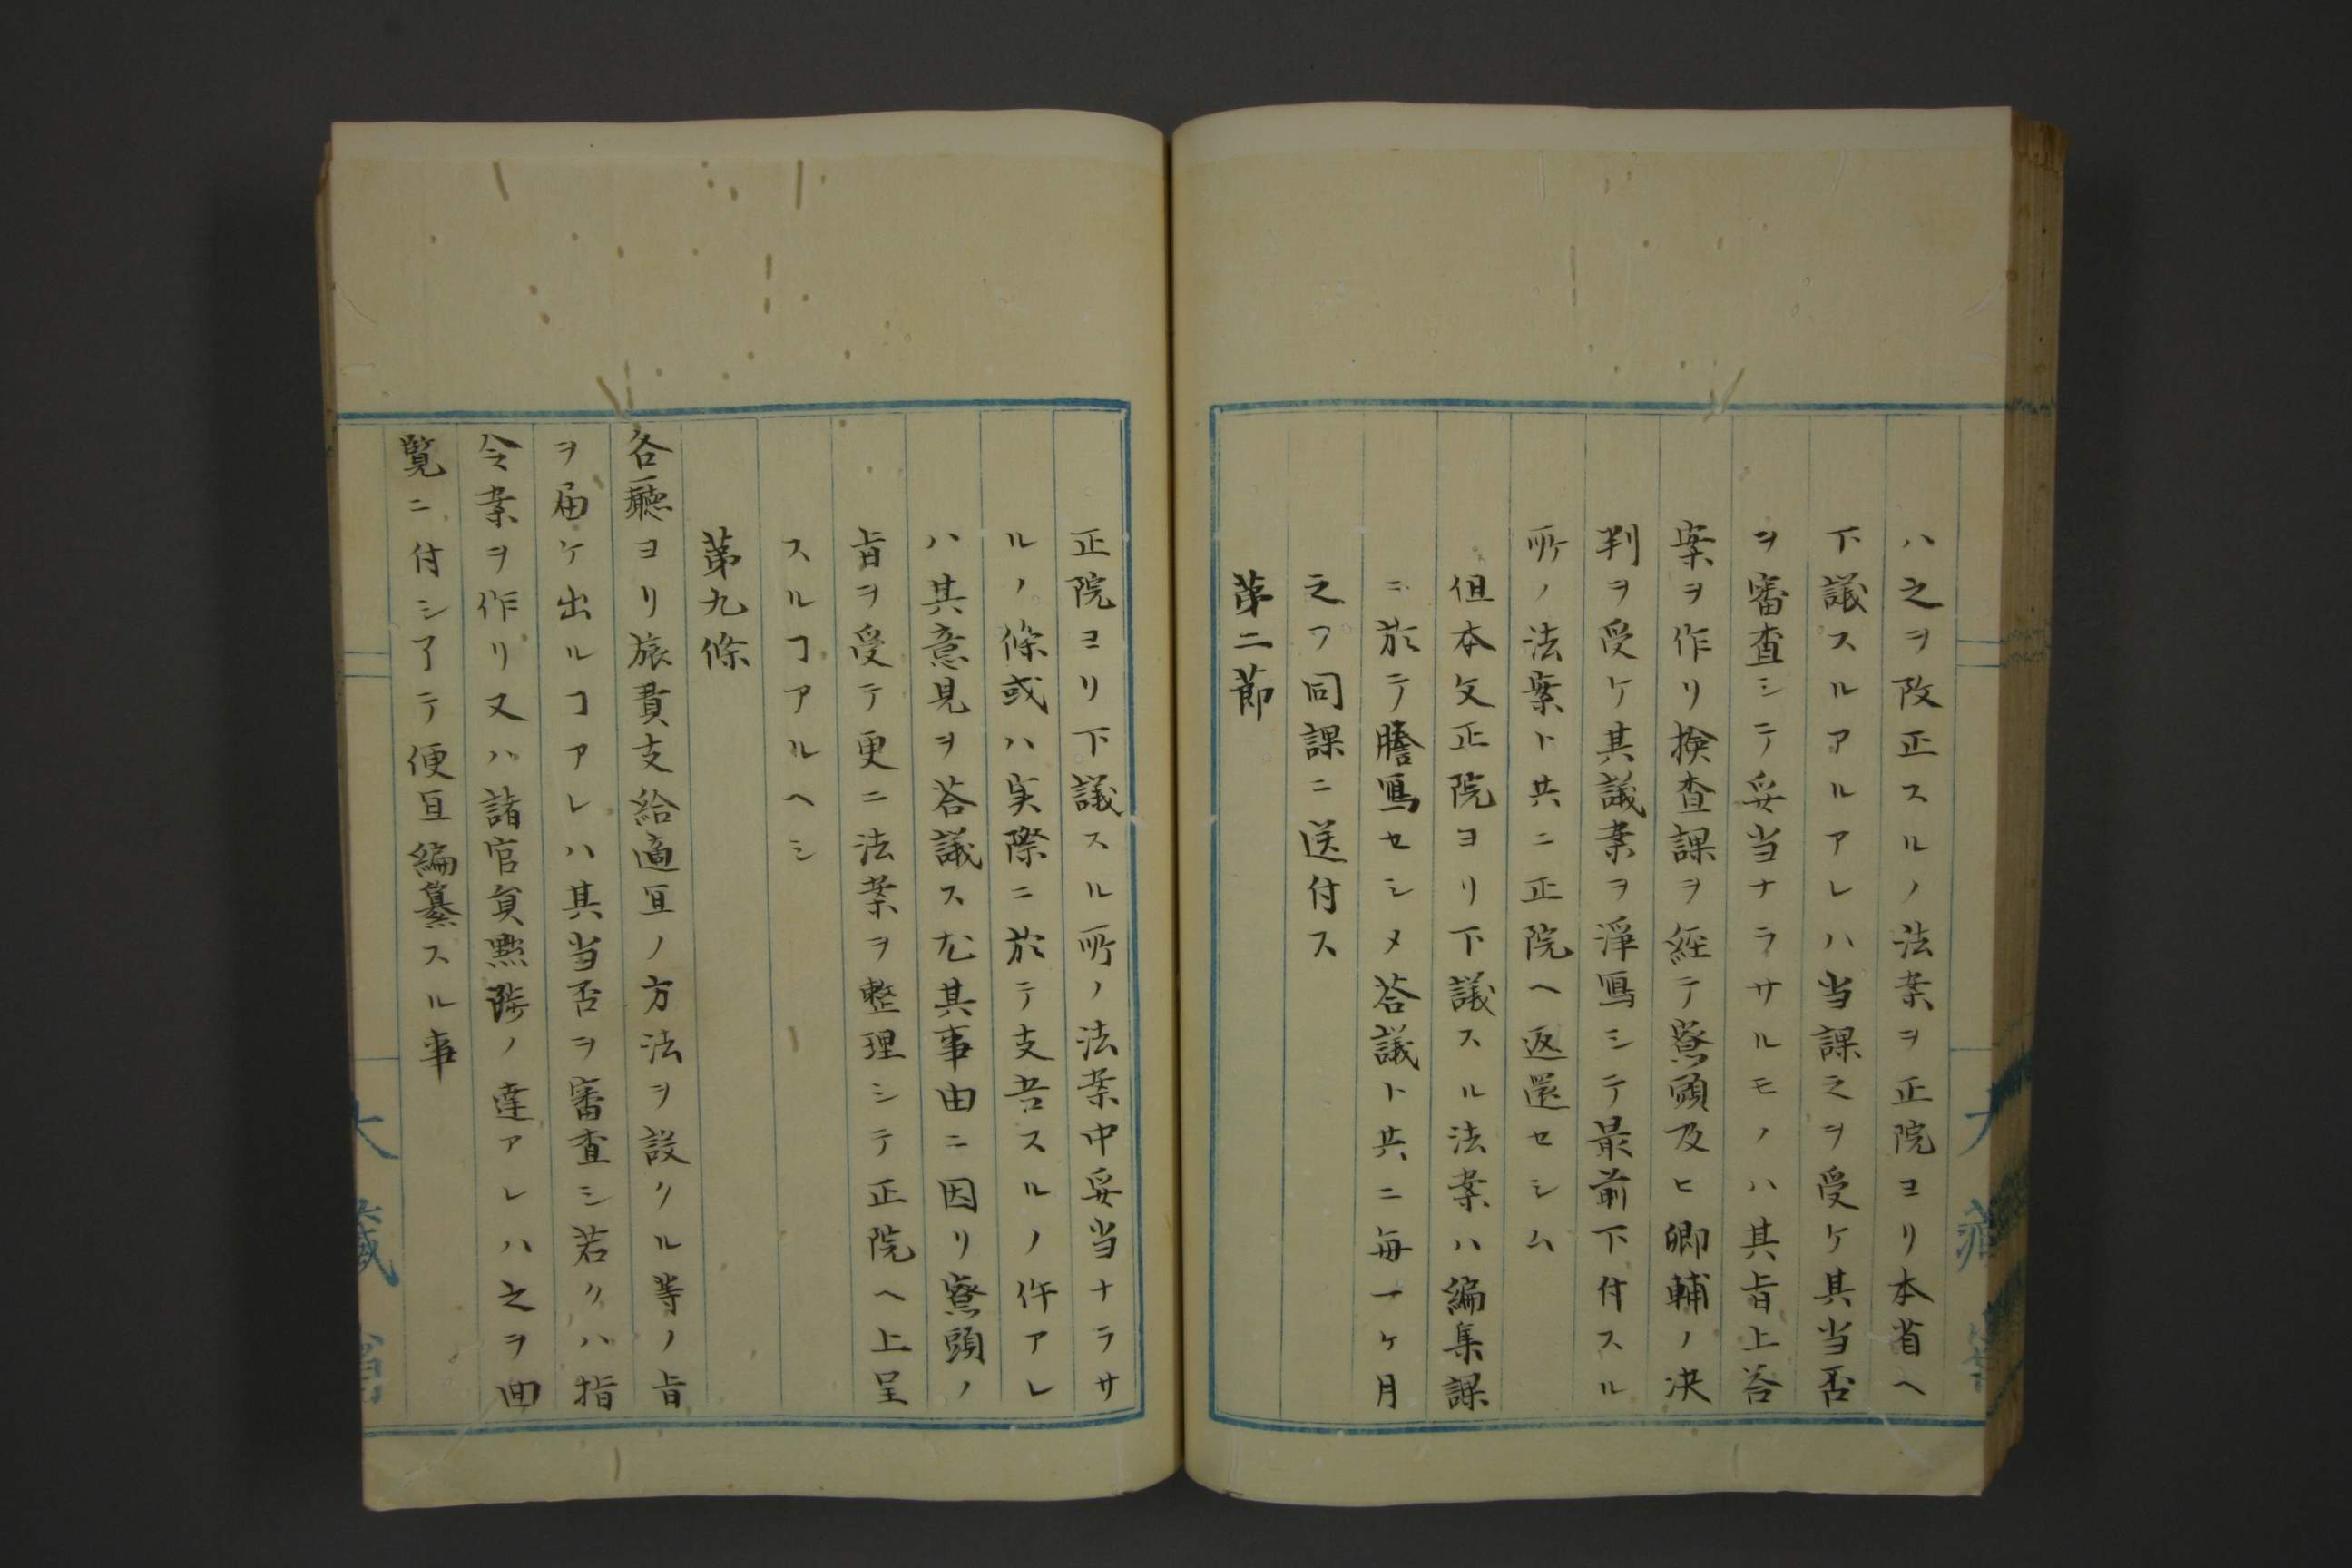 ハ之ヲ改正スルノ法案ヲ正院ヨリ本省ヘ
下議スルアルアレハ当課之ヲ受ケ其当否
ヲ審査シテ妥当ナラサルモノハ其旨上答
案ヲ作リ検査課ヲ経テ寮頭及ヒ卿輔ノ决
判ヲ受ケ其議案ヲ淨寫シテ最前下付スル
所ノ法案ト共ニ正院ヘ返還セシム
但本文正院ヨリ下議スル法案ハ編集課
ニ於テ謄寫セシメ答議ト共ニ毎一ケ月
之ヲ同課ニ送付ス
第二節
正院ヨリ下議スル所ノ法案中妥当ナラサ
ルノ條或ハ実際ニ於テ支吾スルノ件アレ
ハ其意見ヲ答議スヘ尤其事由ニ因リ寮頭ノ
旨ヲ受テ更ニ法案ヲ整理シテ正院ヘ上呈
スルヿアルヘシ
第九條
各廳ヨリ旅費支給適宜ノ方法ヲ設クル等ノ旨
ヲ届ケ出ルヿアレハ其当否ヲ審査シ若クハ指
令案ヲ作リ又ハ諸官員黜陟ノ達アレハ之ヲ回
覧ニ付シ了テ便宜編纂スル事
大藏省
大藏省